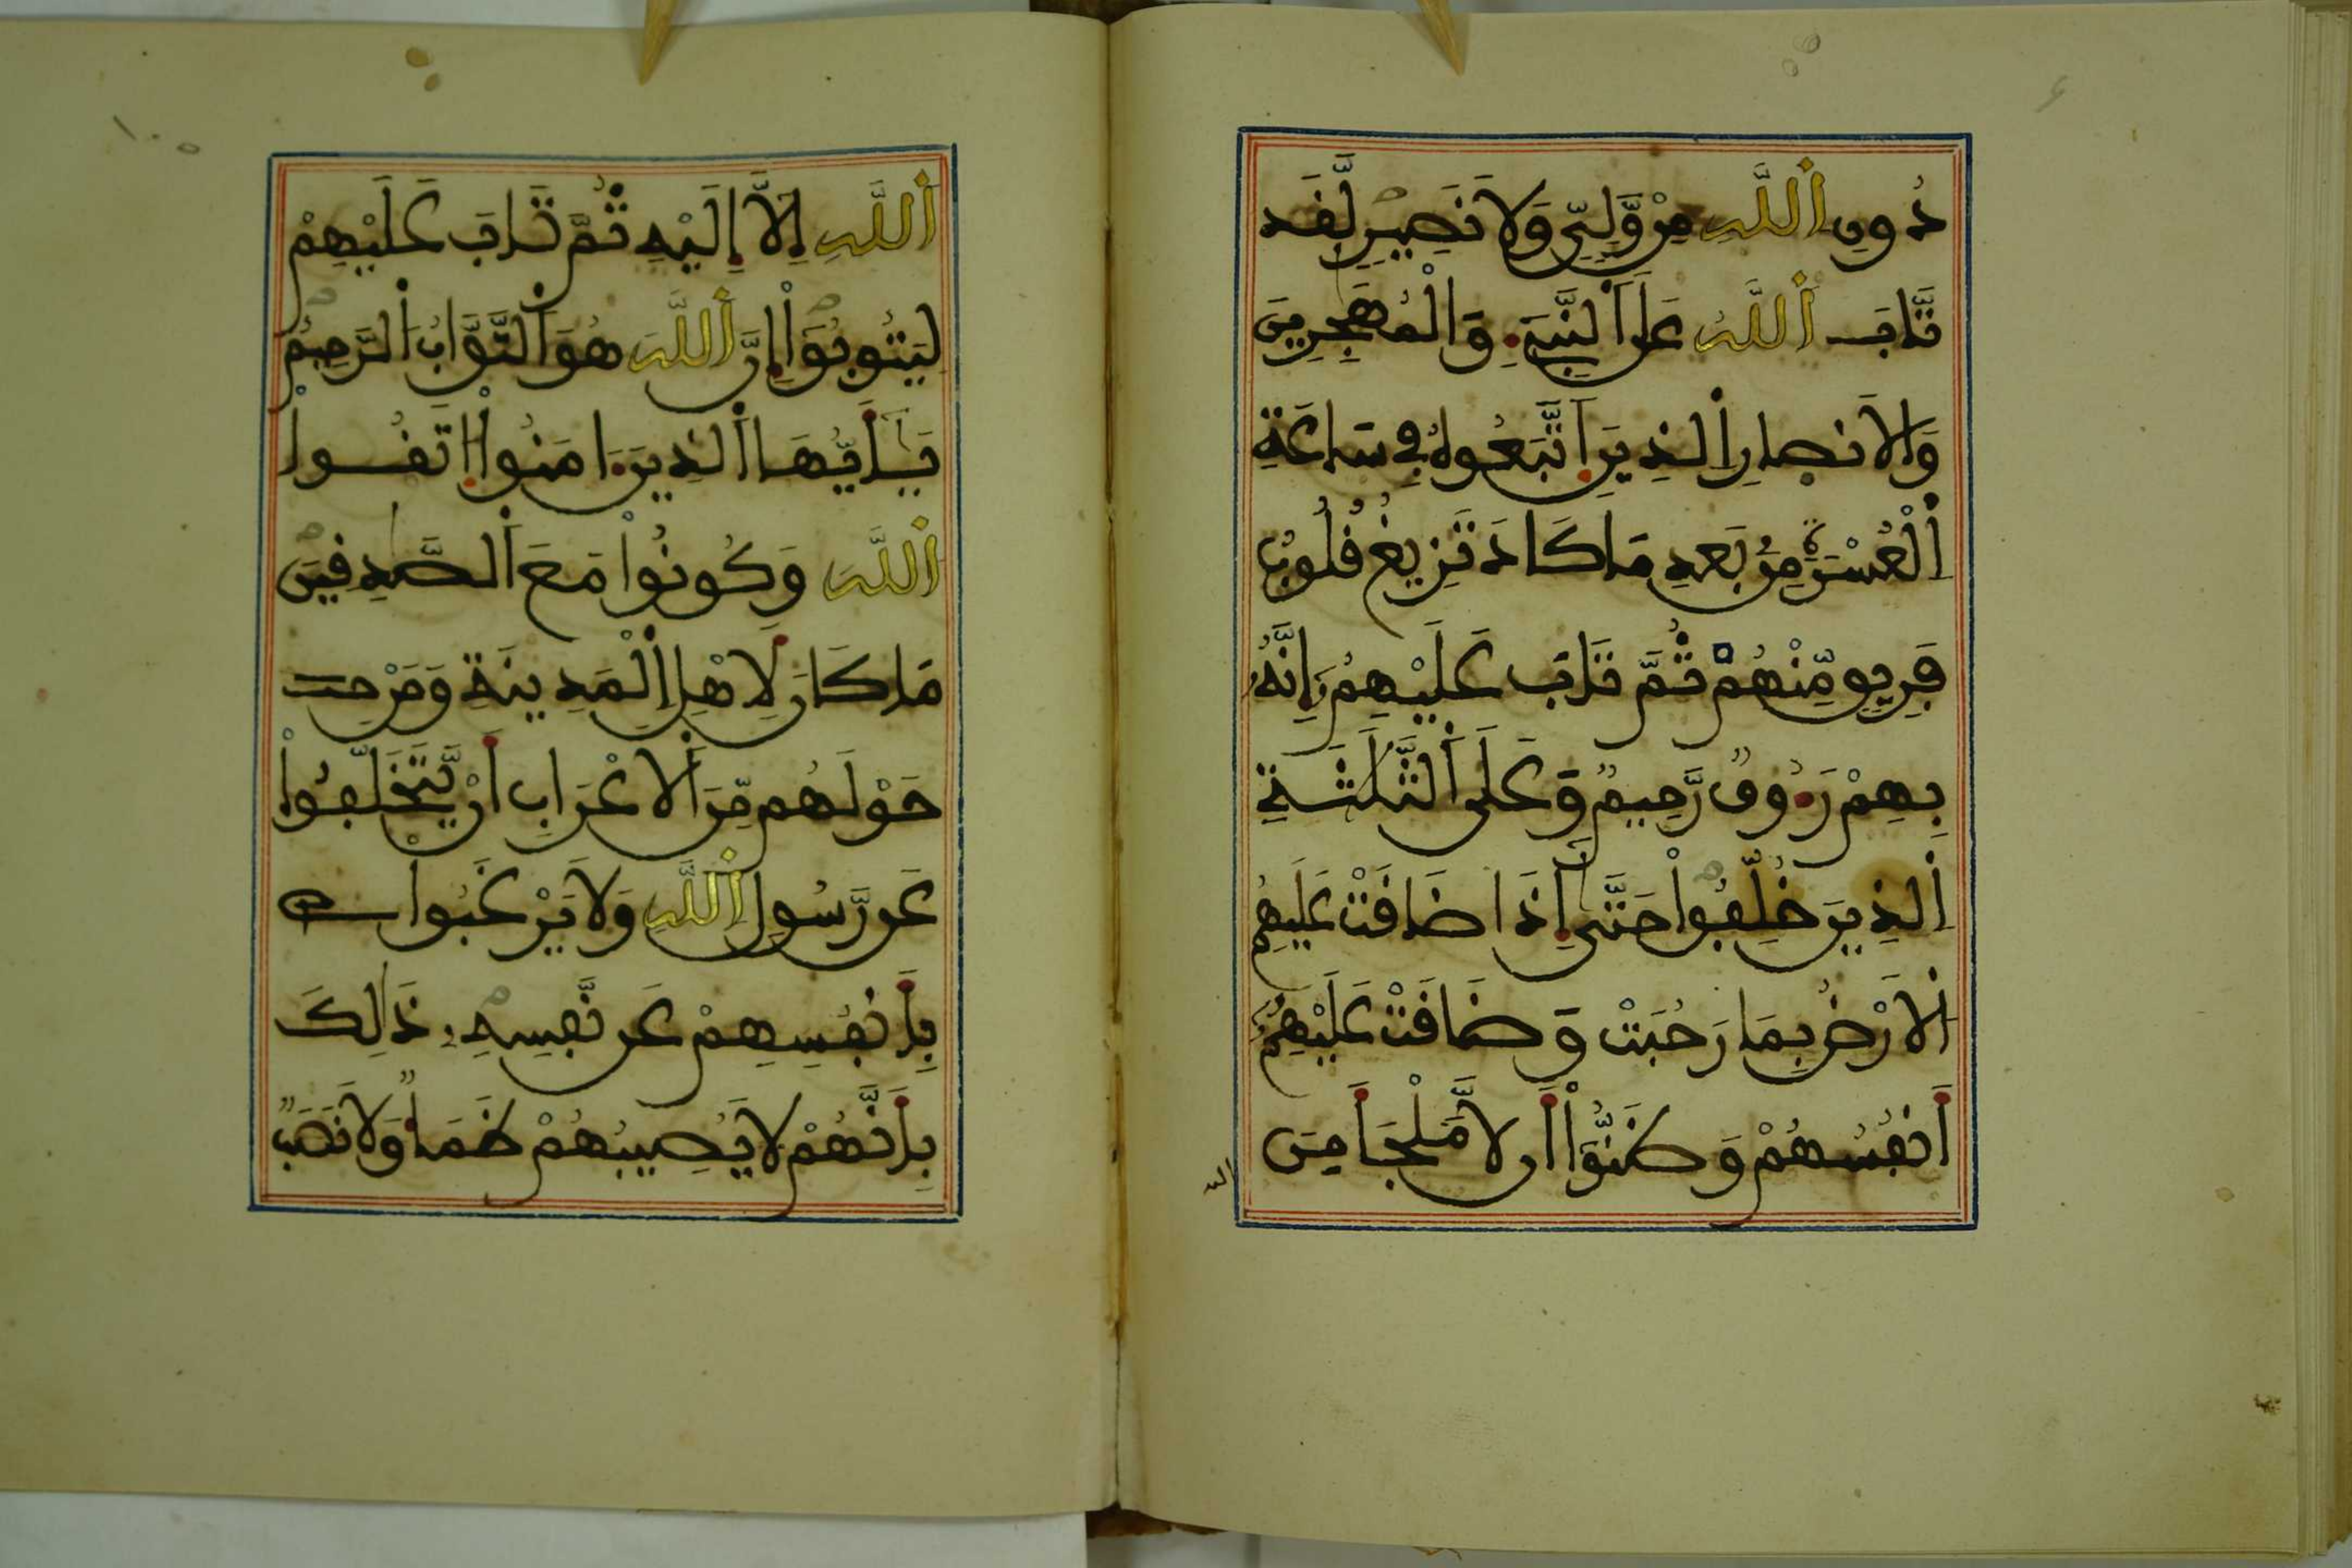 دُونِ اِ۬للَّهِ مِنْ وَّلِيّٖ وَلَا نَصِيرٖ لَّقَد
تَّابَ اَ۬للَّهُ عَلَى اَ۬لنَّبِےٓءِ وَالْمُهَٰجِرِينَ
وَالَانصارِ اِ۬لذِينَ اَ۪تَّبَعُوهُ فِے سَاعَةِ
اِ۬لْعُسْرَةِ مِنۢ بَعْدِ مَا كَادَ تَزِيغُ قُلُوبُ
فَرِيقٖ مِّنْهُمْ ثُمَّ تَابَ عَلَيْهِمُۥٓ إِنَّهُۥ
بِهِمْ رَءُوفٞ رَّحِيمٞ وَعَلَى اَ۬لثَّلَٰثَةِ
اِ۬لذِينَ خُلِّفُواْ حَتَّىٰٓ إِذَا ضَاقَتْ عَلَيْهِمُ
اُ۬لَارْضُ بِمَا رَحُبَتْ وَضَاقَتْ عَلَيْهِمُۥٓ
أَنفُسُهُمْ وَظَنُّوٓاْ أَن لَّا مَلْجَأَ مِنَ
الله
اَ۬للَّهِ إِلَّآ إِلَيْهِ ثُمَّ تَابَ عَلَيْهِمْ
لِيَتُوبُوٓاْ إِنَّ اَ۬للَّهَ هُوَ اَ۬لتَّوَّابُ اُ۬لرَّحِيمُ
يَٰٓأَيُّهَا اَ۬لذِينَ ءَامَنُواْ اُ۪تَّقُواْ
اُ۬للَّهَ وَكُونُواْ مَعَ اَ۬لصَّٰدِقِينَ
مَا كَانَ لِأَهْلِ اِ۬لْمَدِينَةِ وَمَنْ
حَوْلَهُم مِّنَ اَ۬لَاعْرَابِ أَنْ يَّتَخَلَّفُواْ
عَن رَّسُولِ اِ۬للَّهِ وَلَا يَرْغَبُواْ
بِأَنفُسِهِمْ عَن نَّفْسِهِۦ ذَٰلِكَ
بِأَنَّهُمْ لَا يُصِيبُهُمْ ظَمَأٞ وَلَا نَصَبٞ